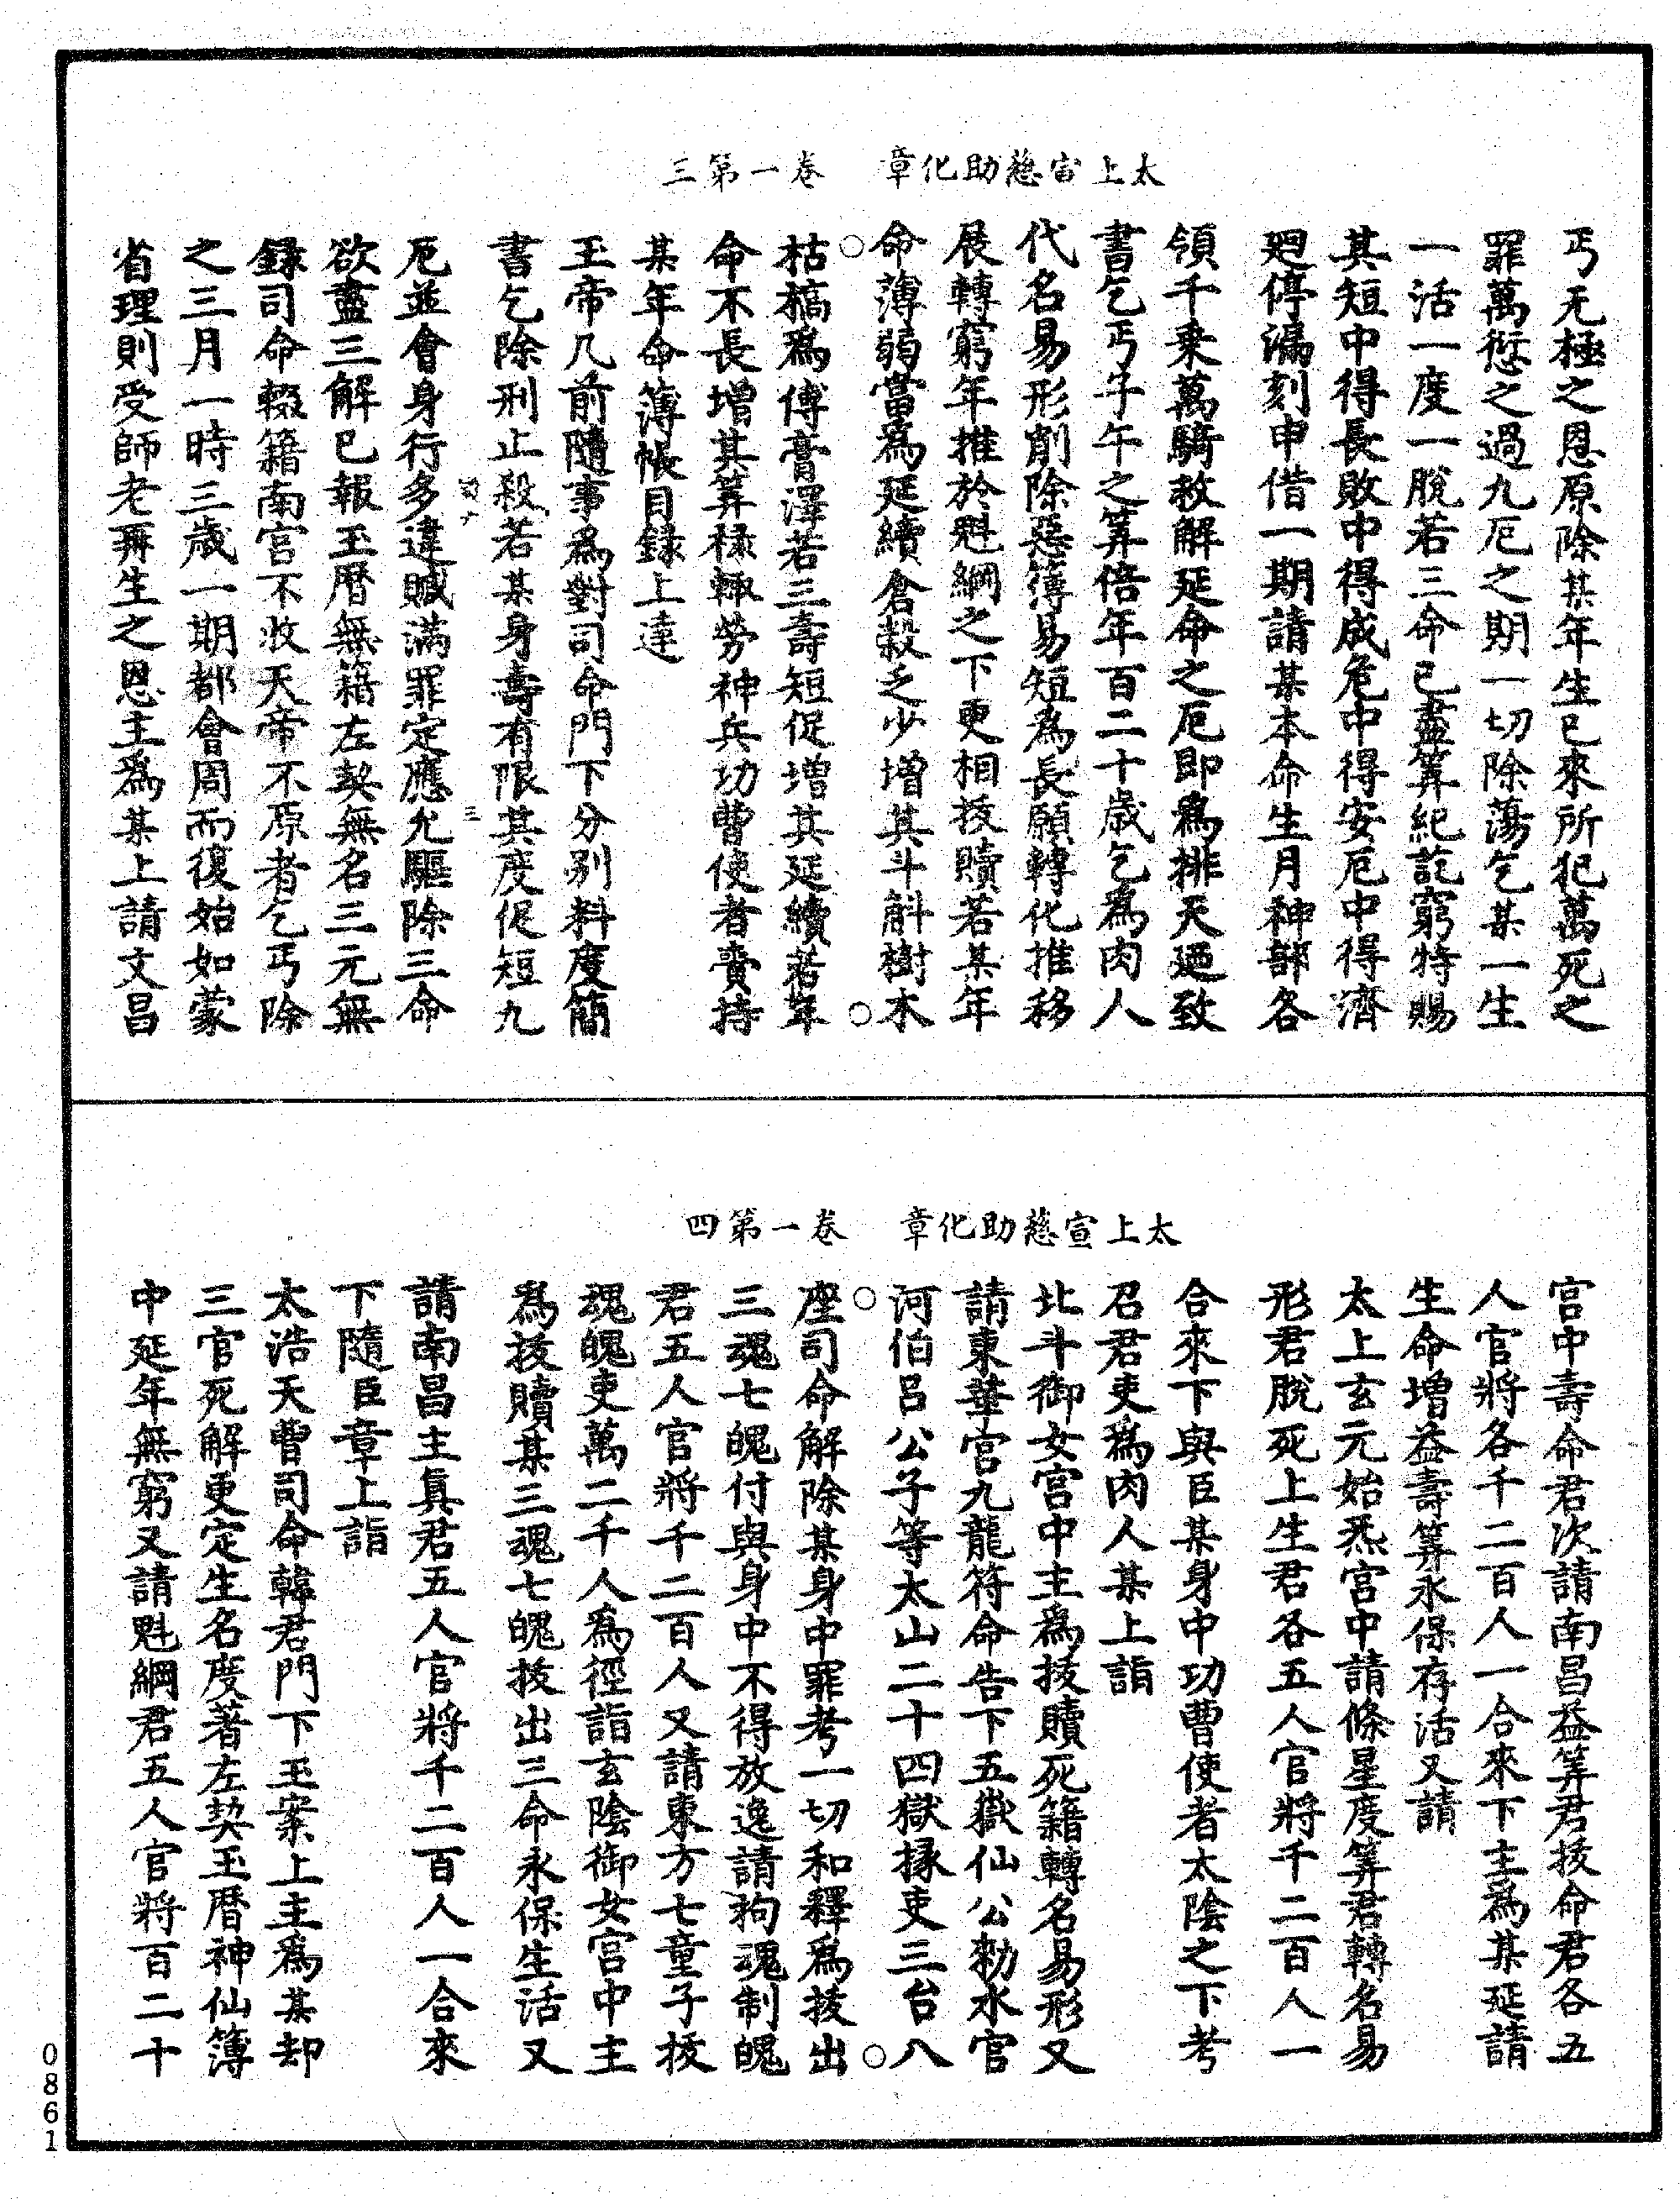 太上宙慈助化章　卷一第三
丐无極之恩原除某年生已來所犯萬死之
罪萬愆之過九厄之期一切除蕩乞某一生
一活一度一脫若三命已盡筭紀訖窮特賜
其短中得長敗中得成危中得安厄中得濟
廻停漏刻申借一期請某本命生月神部各
領千乗萬騎救解延命之厄即爲排天廻致
書乞丐子午之筭倍年百二十歲乞爲肉人
代名易形削除惡簿易短爲長願轉化推移
展轉窮年推於魁綱之下更相拔贖若某年
命薄弱當爲延續倉穀乏少增其斗斛樹木
枯槁爲傅膏澤若三壽短促增其延續若年
命不長增其筭祿輙勞神兵功曹使者賫持
某年命簿帳目録上達
玉帝几前隨事爲對司命門下分別料度簡
書乞除刑止殺若某身壽有限其度促短九
厄並會身行多違贓滿罪定應允驅除三命
欲盡三解已報玉曆無籍左契無名三元無
録司命輟籍南宮不收天帝不原者乞丐除
之三月一時三歲一期都會周而復始如蒙
省理則受師老再生之恩主爲某上請文昌
太上宣慈助化章　卷一第四
宮中壽命君次請南昌益筭君拔命君各五
人官將各千二百人一合來下主爲某延請
生命增益壽筭永保存活又請
太上玄元始炁宮中請條星度筭君轉名易
形君脫死上生君各五人官將千二百人一
合來下與臣某身中功曹使者太陰之下考
召君吏爲肉人某上詣
北斗御女宮中主爲拔贖死籍轉名易形又
請東華宮九龍符命告下五嶽仙公勑水官
河伯呂公子等太山二十四獄掾吏三台八
座司命解除某身中罪考一切和釋爲拔出
三魂七魄付與身中不得放逸請拘魂制魄
君五人官將千二百人又請東方七童子拔
魂魄吏萬二千人爲徑詣玄陰御女宮中主
爲拔贖某三魂七魄拔出三命永保生活又
請南昌主眞君五人官將千二百人一合來
下隨臣章上詣
太浩天曹司命韓君門下玉案上主爲某却
三官死解更定生名度著左契玉曆神仙簿
中延年無窮又請魁綱君五人官將百二十
0861